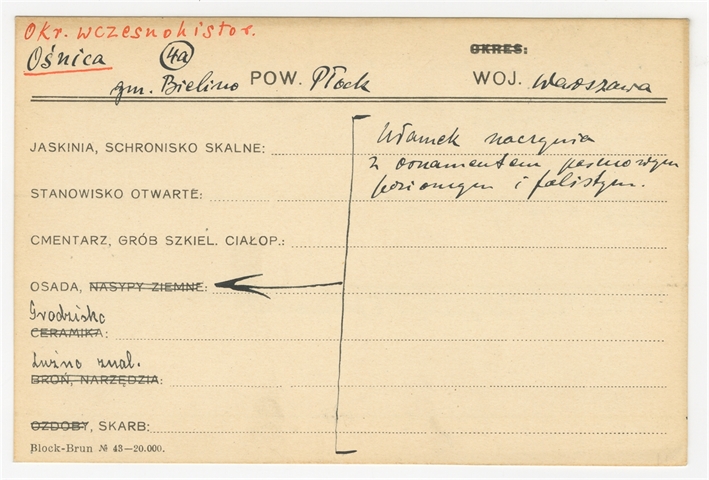 Okr. wczesnohistor.
Ośnica 4a OKRES:
gm. Bielino POW. Płock WOJ. Warszawa
JASKINIA, SCHRONISKO SKALNE: Ułamek naczynia
z ornamentem pasmowym
STANOWISKO OTWARTE: poziomym i falistym.
CMENTARZ, GRÓB SZKIEL. CIAŁOP.:
OSADA, NASYPY ZIEMNE:
Grodzisko
CERAMIKA:
Luźno znal.
BROŃ, NARZĘDZIA:
OZDOBY, SKARB:
Block-Brun № 43—20.000.